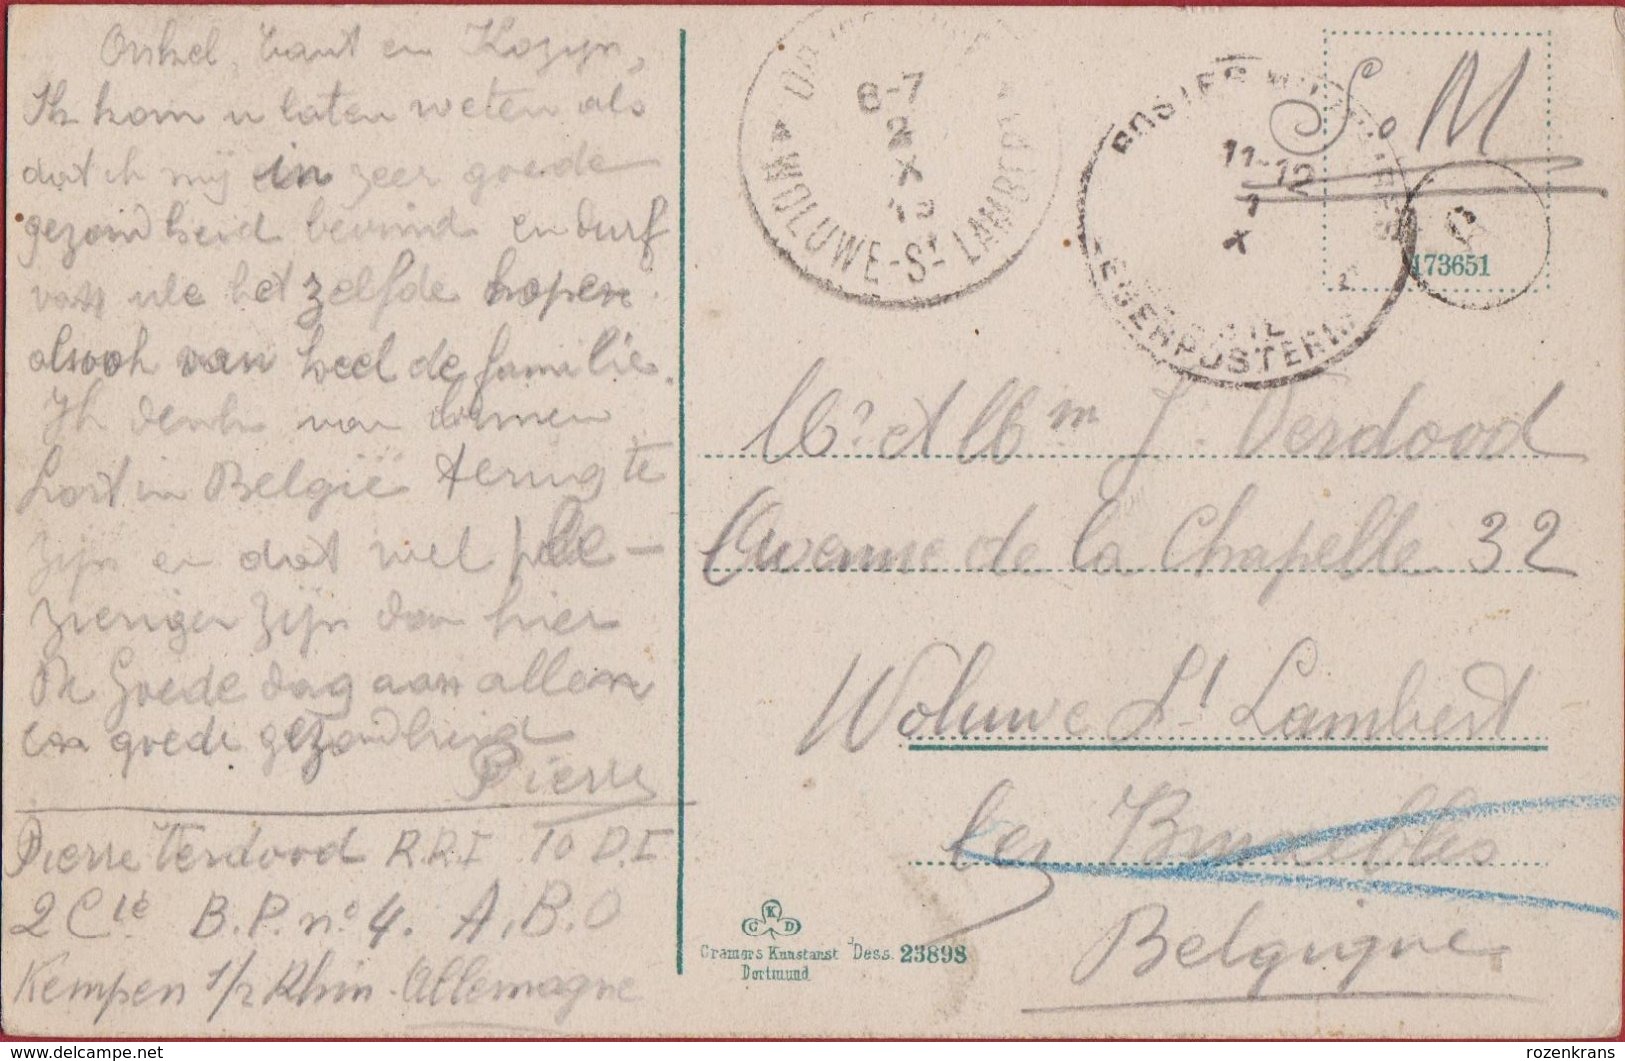 Onkel, Tant en Kozyn,
Ik kom u laten weten als
dat ik mij in zeer goede
gezondheid bevind en durf
van ule het zelfde hopen
alsook van heel de familie.
Ik denk van binnen
kort in België terug te
zijn en dat wel ple-
zieriger zijn dan hier
De Goede dag aan allen
en goede gezondheid
Pierre
Pierre Verdood R.R.I 10 D.I
2 Cie B.P. no 4. A.B.O
Kempen 1/2 Rhin. Allemagne
WOLUWE-St LAMBERT
6-7
2
X
19
POSTES MILITAIRES
11-12
1
X
LEGERPOSTERIJ
S.M
6
173651
Mr et Mm J. Verdood
Avenue de la Chapelle 32
Woluwe St Lambert
lez Bruxelles
Belgique
CKD
Cramers Kunstanst Dess. 23898
Dortmund
rozenkrans